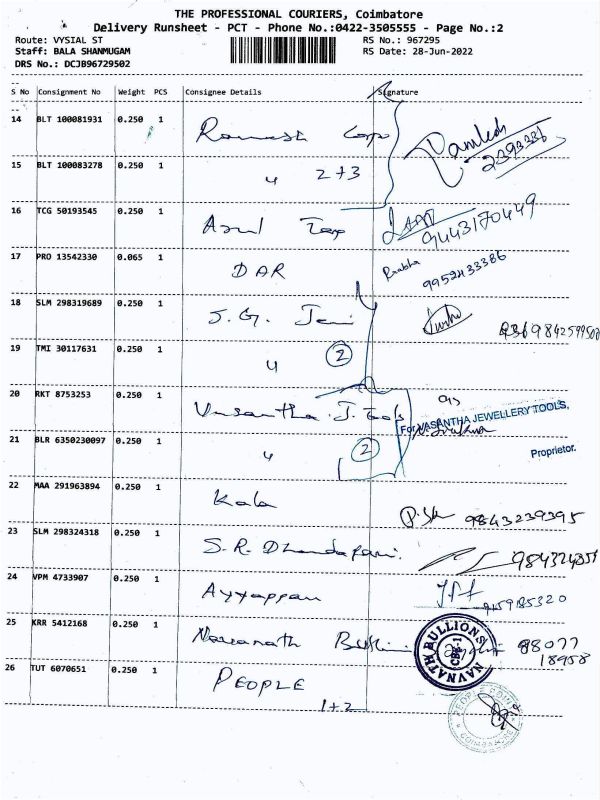 THE PROFESSIONAL COURIERS, Coimbatore
Delivery Runsheet - PCT - Phone No.:0422-3505555 - Page No.:2
Route: VYSIAL ST
RS No.: 967295
Staff: BALA SHANMUGAM
RS Date: 28-Jun-2022
DRS No.: DCJB96729502
S No Consignment No Weight PCS Consignee Details Signature
14 BLT 100081931 0.250 1 Ramesh Corp
2393386
15 BLT 100083278 0.250 1 " 2+3
16 TCG 50193545 0.250 1 Asul Tex 9443170449
17 PRO 13542330 0.065 1 DAR 9952433386
18 SLM 298319689 0.250 1 S.G. Jem
19 TMI 30117631 0.250 1 " 2
20 RKT 8753253 0.250 1 Vasantha J. Tools
For VASANTHA JEWELLERY TOOLS,
21 BLR 6350230097 0.250 1 " 2
Proprietor.
22 MAA 291963894 0.250 1 Kala 9843239395
23 SLM 298324318 0.250 1 S.R. Dhandapani.
24 VPM 4733907 0.250 1 Ayyappan
25 KRR 5412168 0.250 1 Navanath Bullion 88077
18958
NAVNATH BULLIONS
CBE-1
26 TUT 6070651 0.250 1 PEOPLE
1+2
COIMBATORE